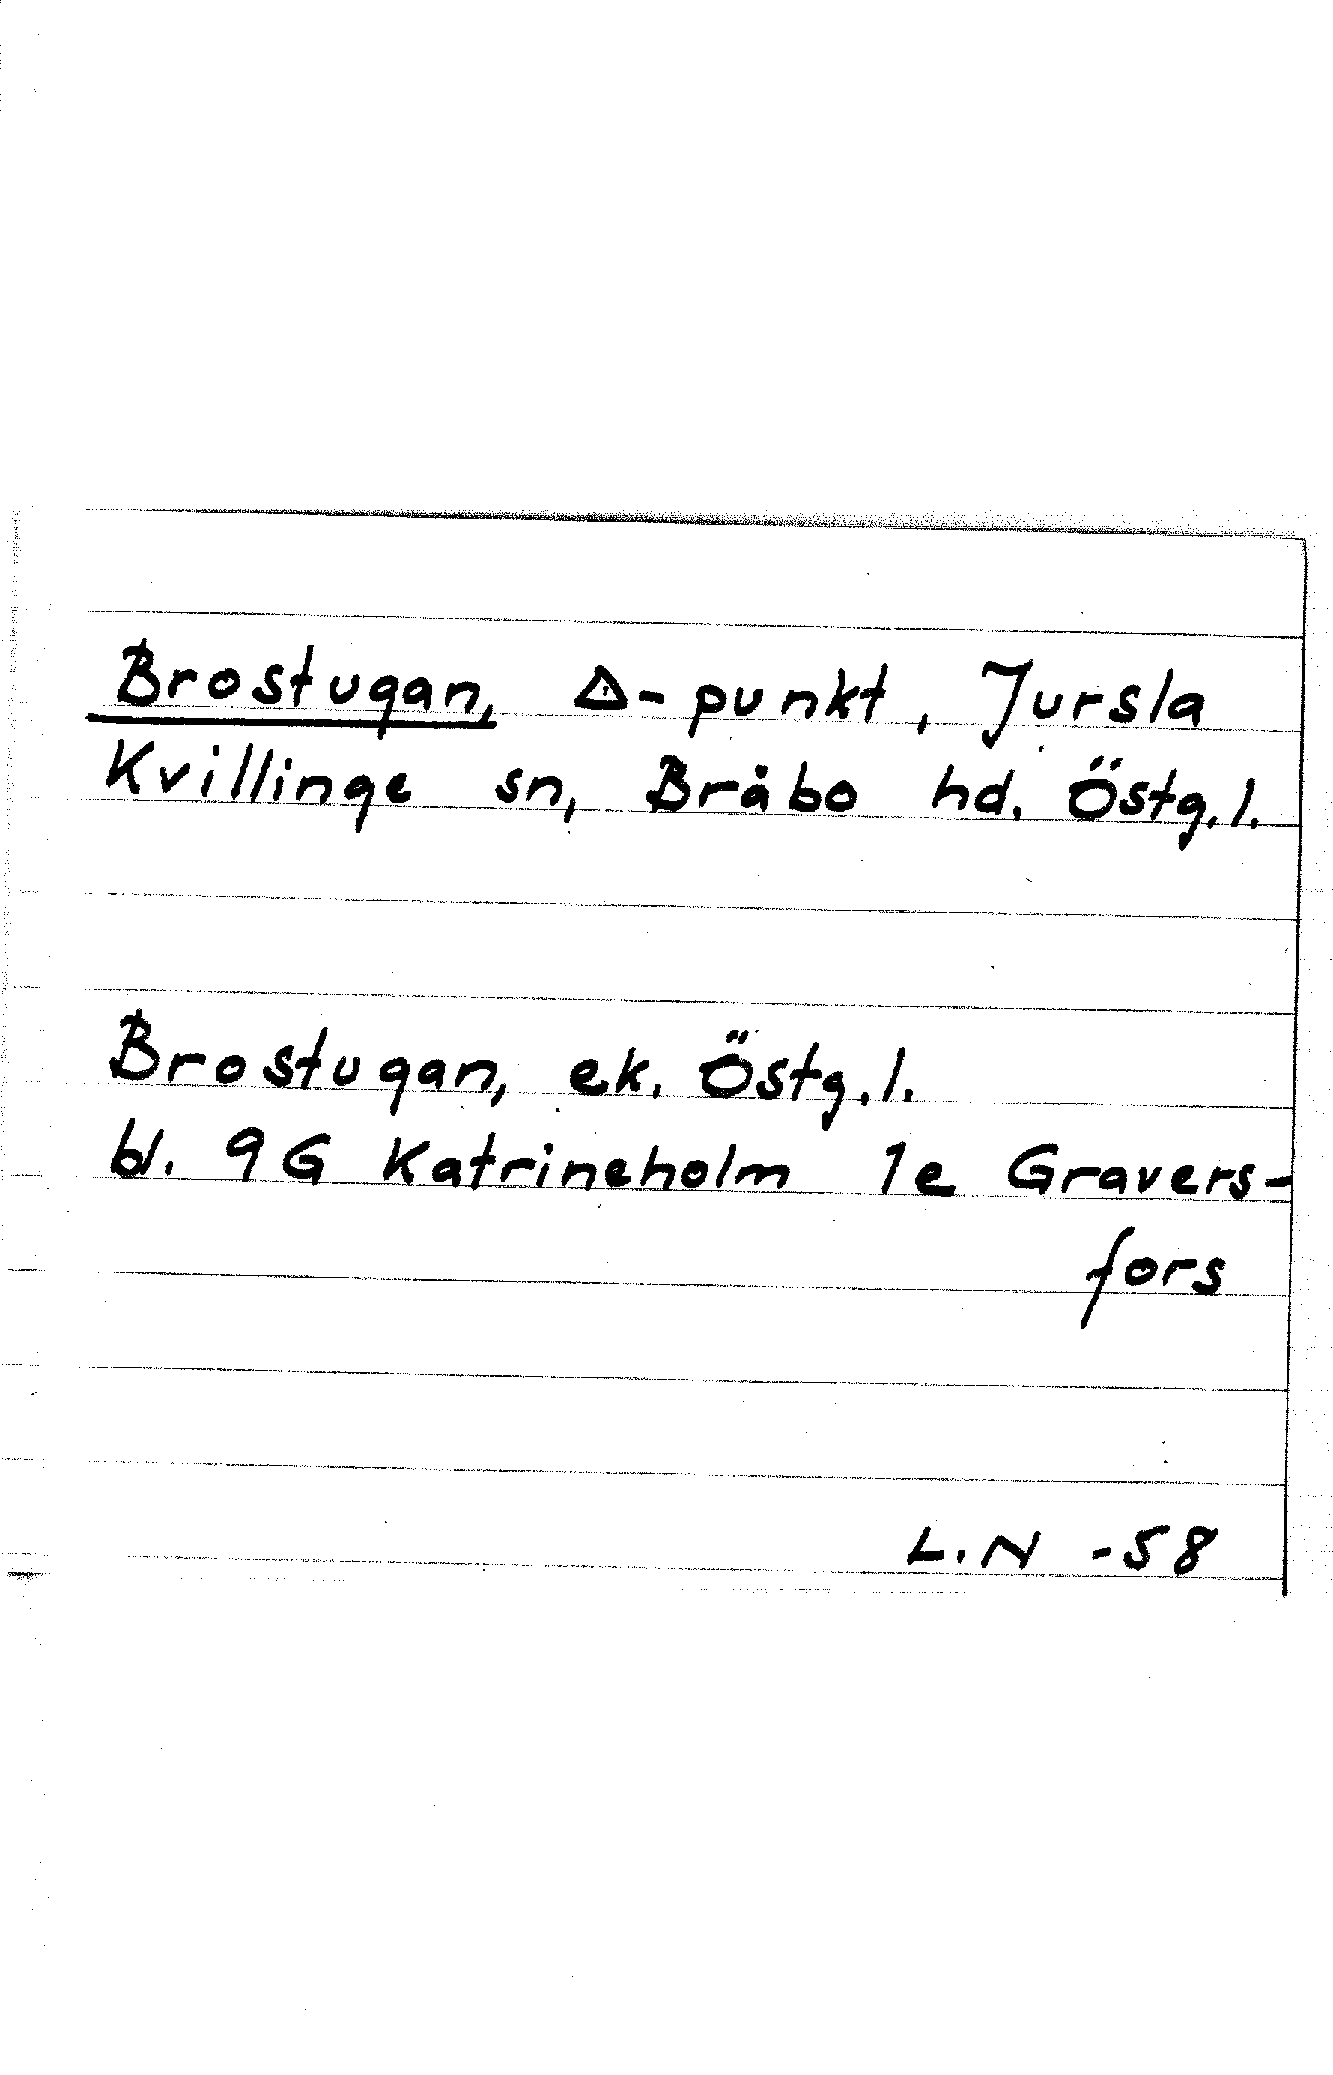 Brostugan, △-punkt, Jursla
Kvillinge sn, Bråbo hd. Östg.l.
Brostugan, ek. Östg.l.
bl. 9G Katrineholm 1e Gravers-
fors
L.N -58